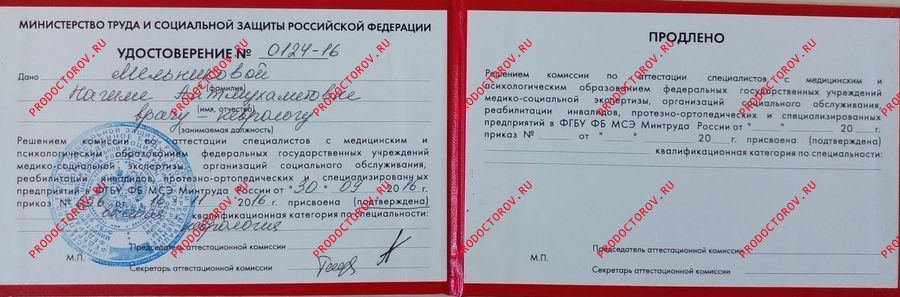 МИНИСТЕРСТВО ТРУДА И СОЦИАЛЬНОЙ ЗАЩИТЫ РОССИЙСКОЙ ФЕДЕРАЦИИ
УДОСТОВЕРЕНИЕ № 0124-16
Дано Мельниковой
(фамилия)
Нагиме
(имя, отчество)
врачу - неврологу
(занимаемая должность)
Решением комиссии по аттестации специалистов с медицинским и
психологическим образованием федеральных государственных учреждений
медико-социальной экспертизы, организаций социального обслуживания,
реабилитации инвалидов, протезно-ортопедических и специализированных
предприятий в ФГБУ ФБ МСЭ Минтруда России от "30" 09 2016 г.
приказ № от " 16 " 11 2016 присвоена (подтверждена)
квалификационная категория по специальности:
неврология
Председатель аттестационной комиссии
М.П.
Секретарь аттестационной комиссии
ПРОДЛЕНО
Решением комиссии по аттестации специалистов с медицинским и
психологическим образованием федеральных государственных учреждений
медико-социальной экспертизы, организаций социального обслуживания,
реабилитации инвалидов, протезно-ортопедических и специализированных
предприятий в ФГБУ ФБ МСЭ Минтруда России от " " 20 г.
приказ № от " " 20 г. присвоена (подтверждена)
квалификационная категория по специальности:
Председатель аттестационной комиссии
М.П.
Секретарь аттестационной комиссии
PRODOCTOROV.RU